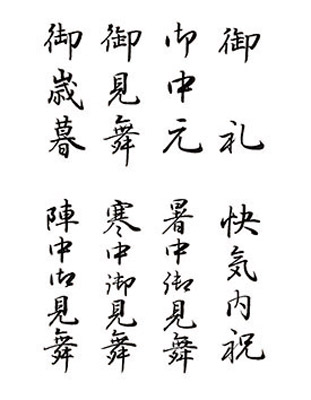 御礼
御中元
御見舞
御歳暮
快気内祝
暑中御見舞
寒中御見舞
陣中御見舞